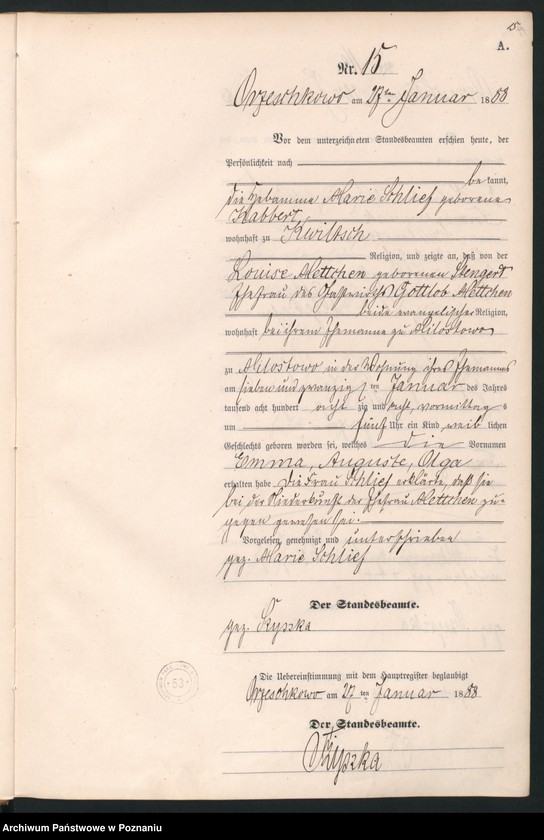 15
A.
Nr. 15
Orzeschkowo am 27ten Januar 1888
Vor dem unterzeichneten Standesbeamten erschien heute, der
Persönlichkeit nach
bekannt,
die Hebamme Marie Schlief geborene
Rabbert,
wohnhaft zu Kwiltsch
Religion, und zeigte an, daß von der
Louise Mettchen geborenen Stengert
Ehefrau des Gastwirths Gottlob Mettchen
beide evangelischer Religion,
wohnhaft bei ihrem Ehemanne zu Milostowo
zu Milostowo in der Wohnung ihres Ehemannes
am sieben und zwanzig ten Januar des Jahres
tausend acht hundert acht zig und acht, vormittag s
um fünf Uhr ein Kind weib lichen
Geschlechts geboren worden sei, welches die Vornamen
Emma, Auguste, Olga
erhalten habe. Die Frau Schlief erklärte, daß sie
bei der Niederkunft der Ehefrau Mettchen zu-
gegen gewesen sei.
Vorgelesen, genehmigt und unterschrieben
gez. Marie Schlief
Der Standesbeamte.
gez. Kyszka
Die Uebereinstimmung mit dem Hauptregister beglaubigt
Orzeschkowo am 27ten Januar 1888
Der Standesbeamte.
Kyszka
53
Archiwum Państwowe w Poznaniu